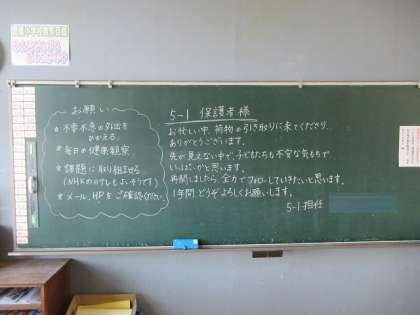 ～お願い～
★不要不急の外出を
ひかえる。
★毎日の健康観察。
★課題に取り組ませる
(NHKのEテレもよいそうです)
★メール、HPをご確認ください。
5-1 保護者様
お忙しい中、荷物の引き取りに来てくださり、
ありがとうございます。
先が見えない中で、子どもたちも不安な気もちで
いっぱいかと思います。
再開しましたら、全力でフォローしていきたいと思います。
1年間、どうぞよろしくお願いします。
5-1 担任